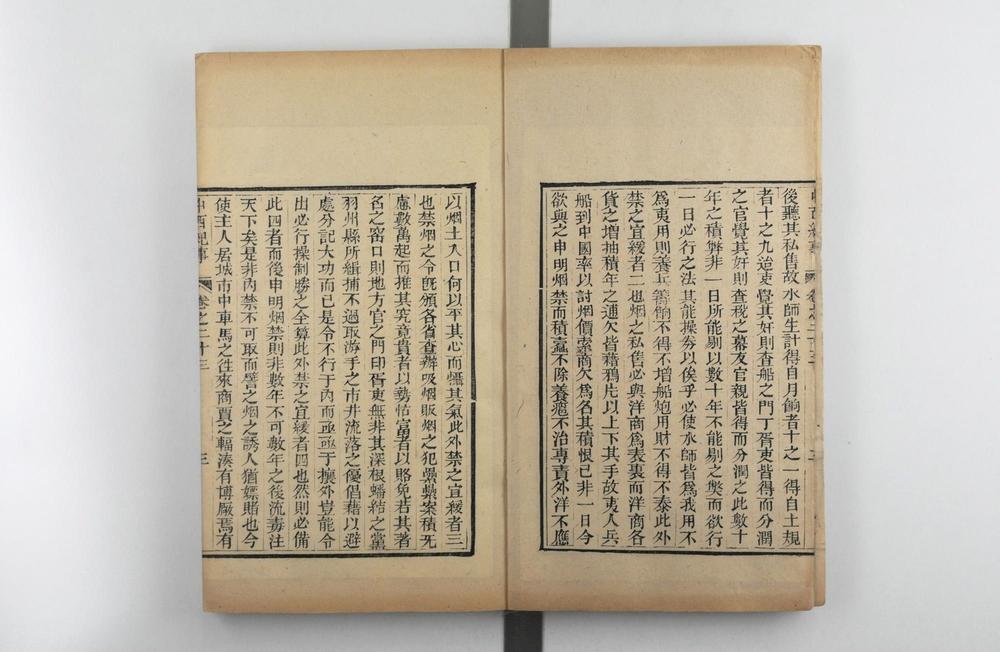 後聽其私售故水師生計得自月餉者十之一得自土規
者十之九迨吏覺其奸則査船之門丁胥吏皆得而分潤
之官覺其奸則査稅之幕友官親皆得而分潤之此數十
年之積弊非一日所能剔以數十年不能剔之獘而欲行
一日必行之法其能操劵以俟乎必使水師皆爲我用不
爲夷用則養兵善餉不得不增船炮用財不得不泰此外
禁之宜緩者二也烟之私售必與洋商爲表裏而洋商各
貨之增抽積年之逋欠皆藉鴉片以上下其手故夷人兵
船到中國率以討烟價索商欠爲名其積恨已非一日今
欲與之申明烟禁而積蠧不除養癰不治專責外洋不應
以烟土入口何以平其心而懾其氣此外禁之宜緩者三
也禁烟之令旣頒各省査辦吸烟販烟之犯纍纍案積死
慮數萬起而推其究竟貴者以勢怙富者以賂免若其著
名之窑口則地方官之門印胥吏無非其深根蟠結之黨
羽州縣所緝捕不過取游手之市井流落之優倡藉以避
處分記大功而已是令不行于內而亟亟于攘外豈能令
出必行操制勝之全算此外禁之宜緩者四也然則必備
此四者而後申明烟禁則非數年不可數年之後流毒注
天下矣是非內禁不可取而譬之烟之誘人猶嫖賭也今
使主人居城市中車馬之徃來商賈之輻湊有博厰焉有
中西紀事　卷之二十三　三